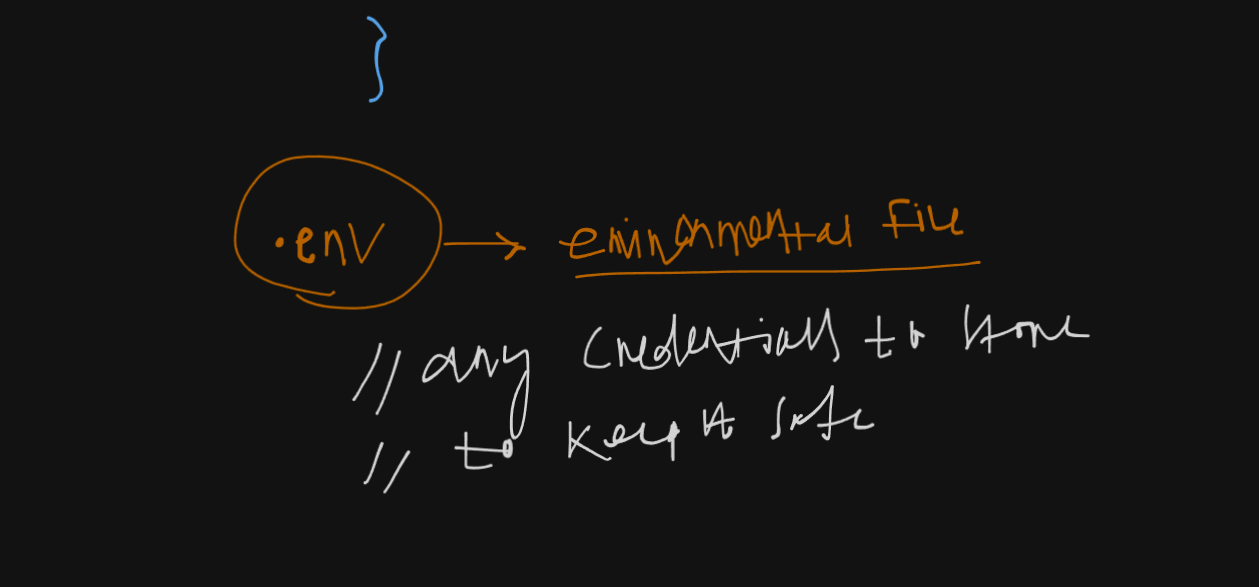 }
.env → environmental File
// any credentials to store
// to keep it safe